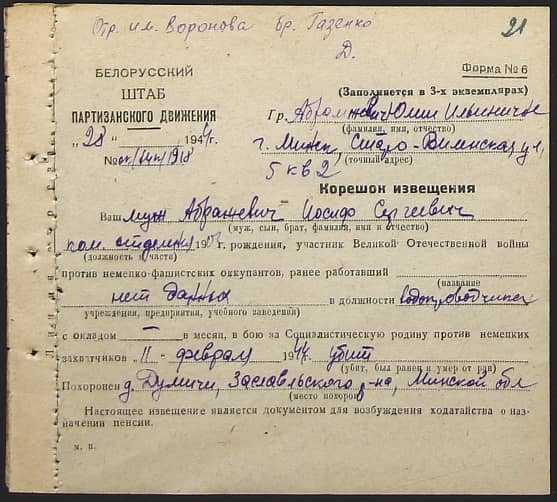 Отр. им. Воронова бр. Газенко
Д.
21
БЕЛОРУССКИЙ
ШТАБ
ПАРТИЗАНСКОГО ДВИЖЕНИЯ
„28 “ 1944г.
Форма № 6
(Заполняется в 3-х экземплярах)
Гр. Абрамкевич Юлии Ильиничне
(фамилия, имя, отчество)
г. Минск, Старо-Виленская ул.,
(точный адрес)
5 кв 2
Корешок извещения
Ваш муж Абрамкевич Иосиф Сергеевич
(муж, сын, брат, фамилия, имя и отчество)
ком. отделен. рождения, участник Великой Отечественной войны
(должность и части)
против немецко-фашистских оккупантов, ранее работавший
(название
нет данных в должности
учреждения, предприятия, учебного заведения)
с окладом — в месяц, в бою за Социалистическую родину против немецких
захватчиков „11 - февраля 1944г. убит
(убит, был ранен и умер от ран)
Похоронен д. Думичи, Заславльского р-на, Минской обл
(место похорон)
Настоящее извещение является документом для возбуждения ходатайства о наз-
начении пенсии.
м. п.